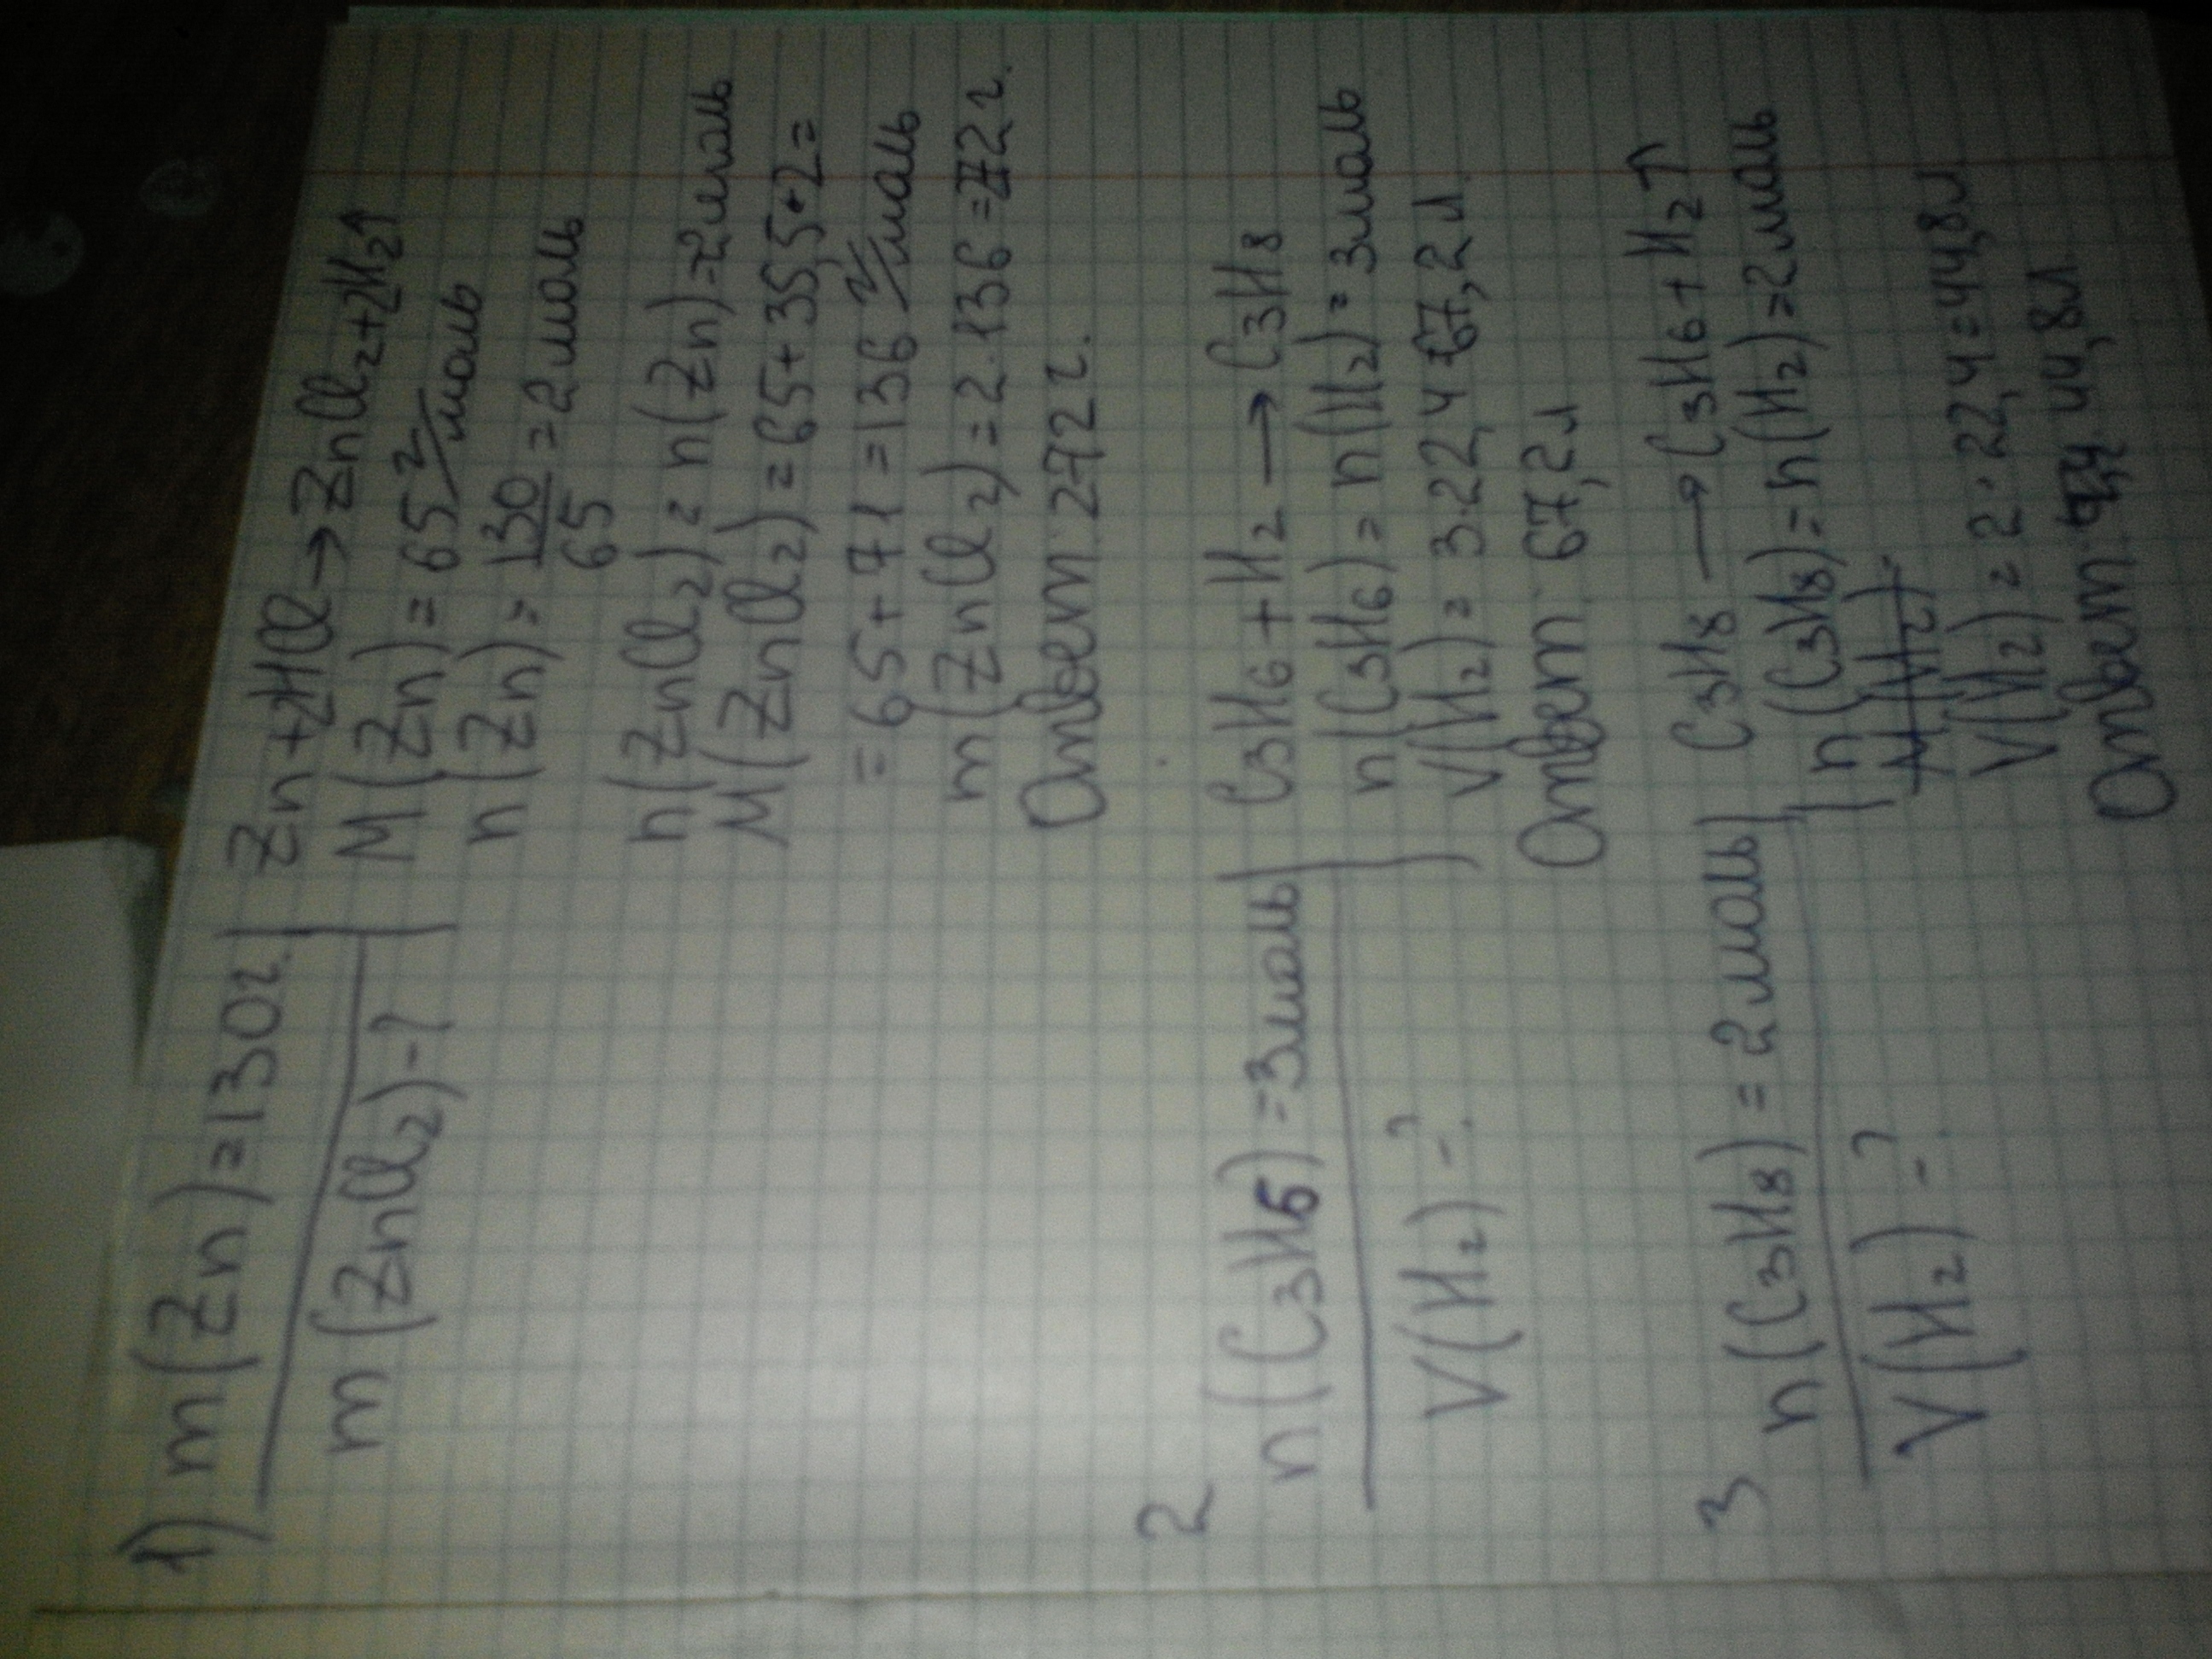 1) m(Zn)=130г.
m(ZnCl2)-?
Zn+2HCl→ZnCl2+2H2↑
M(Zn)=65 г/моль
n(Zn)=130/65=2моль
n(ZnCl2)=n(Zn)=2моль
M(ZnCl2)=65+35,5•2=
=65+71=136 г/моль
m(ZnCl2)=2.136=272г.
Ответ:272г.
2
n(C3H6)=3моль
V(H2)-?
C3H6+H2→C3H8
n(C3H6)=n(H2)=3моль
V(H2)=3.22,4=67,2л.
Ответ: 67,2л
3
n(C3H8)=2моль
V(H2)-?
C3H8→C3H6+H2↑
n(C3H8)=n(H2)=2моль
M(H2)
V(H2)=2.22,4=44,8л
Ответ: 44,8л